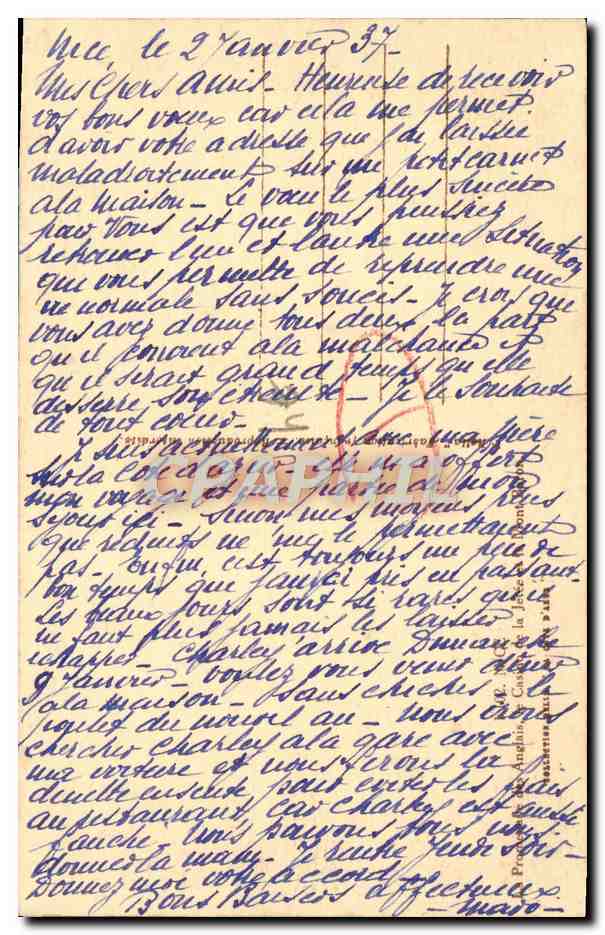 Nice le 2 Janvier 37-
Mes chers Amis - Heureuse de recevoir
vos bons voeux car cela me permet
d'avoir votre adresse que j'ai laissée
maladroitement sur un petit carnet
a la maison - Le voeu le plus sincère
pour Vous est que vous puissiez
retrouver l'un et l'autre une situation
qui vous permette de reprendre une
vie normale sans soucis - Je crois que
vous avez donné tous deux la part
qu'il convient a la malchance et
qu'il serait grand temps qu'elle
desserre son étreinte - Je le souhaite
de tout coeur -
Je suis actuellement avec mon frère
sur la Côte d'azur il m'a offert
mon voyage et une partie de mon
séjour ici - Sinon mes moyens plus
que réduits ne me le permettaient
pas - Enfin c'est toujours un peu de
bon temps que j'aurai pris en passant
Les beaux jours sont si rares qu'il
ne faut plus jamais les laisser
échapper - Charley arrive Dimanche
9 Janvier - voulez vous venir dîner
a la maison - Sans chichis - le
poulet du nouvel an - Nous irons
chercher Charley a la gare avec
ma voiture et nous ferons la
dinette ensuite pour eviter les frais
au restaurant car Charley est aussi
fauché - Nous pouvons tous nous
donner la main - Je rentre Jeudi soir -
Donnez moi votre accord
Bons Baisers affectueux
- Mado -
CPAPHIL
NICE
Promenade des Anglais, le Casino de la Jetée et le Mont Boron
COLLECTION
COTE D'AZUR